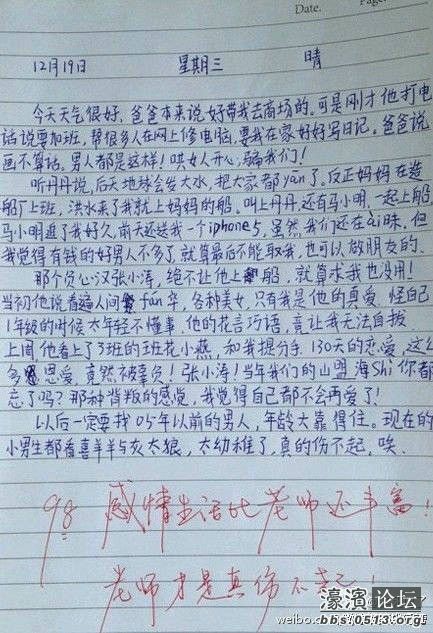 Date.
Page.
12月19日 星期三 晴
今天天气很好，爸爸本来说好带我去商场的。可是刚才他打电
话说要加班，帮很多人在网上修电脑，要我在家好好写日记。爸爸说
画不算话。男人都是这样！哄女人开心，骗我们！
听丹丹说，后天地球会发大水，把大家都yān了。反正妈妈在造
船厂上班，洪水来了我就上妈妈的船。叫上丹丹还有马小明，一起上船，
马小明追了我好久，前天还送我一个iphone5，虽然我们还在ài昧，但
我觉得有钱的好男人不多了，就算最后不能取我，也可以做朋友的。
那个负心汉张小涛，绝不让他上船，就算求我也没用！
当初他说看遍人间fán华，各种美女，只有我是他的真爱。怪自己
1年级的时候太年轻不懂事，他的花言巧语，竟让我无法自拔。
上周他看上了3班的班花小燕，和我提分手。130天的恋爱，这么
多恩爱，竟然被辜负！张小涛！当年我们的山盟海shì你都
忘了吗？那种背叛的感觉，我觉得自己都不会再爱了！
以后一定要找05年以前的男人，年龄大靠得住。现在的
小男生都看喜羊羊与灰太狼，太幼稚了，真的伤不起，唉。
98 感情生活比老师还丰富！
老师才是真伤不起！
濠濱论坛
bbs.0513.org